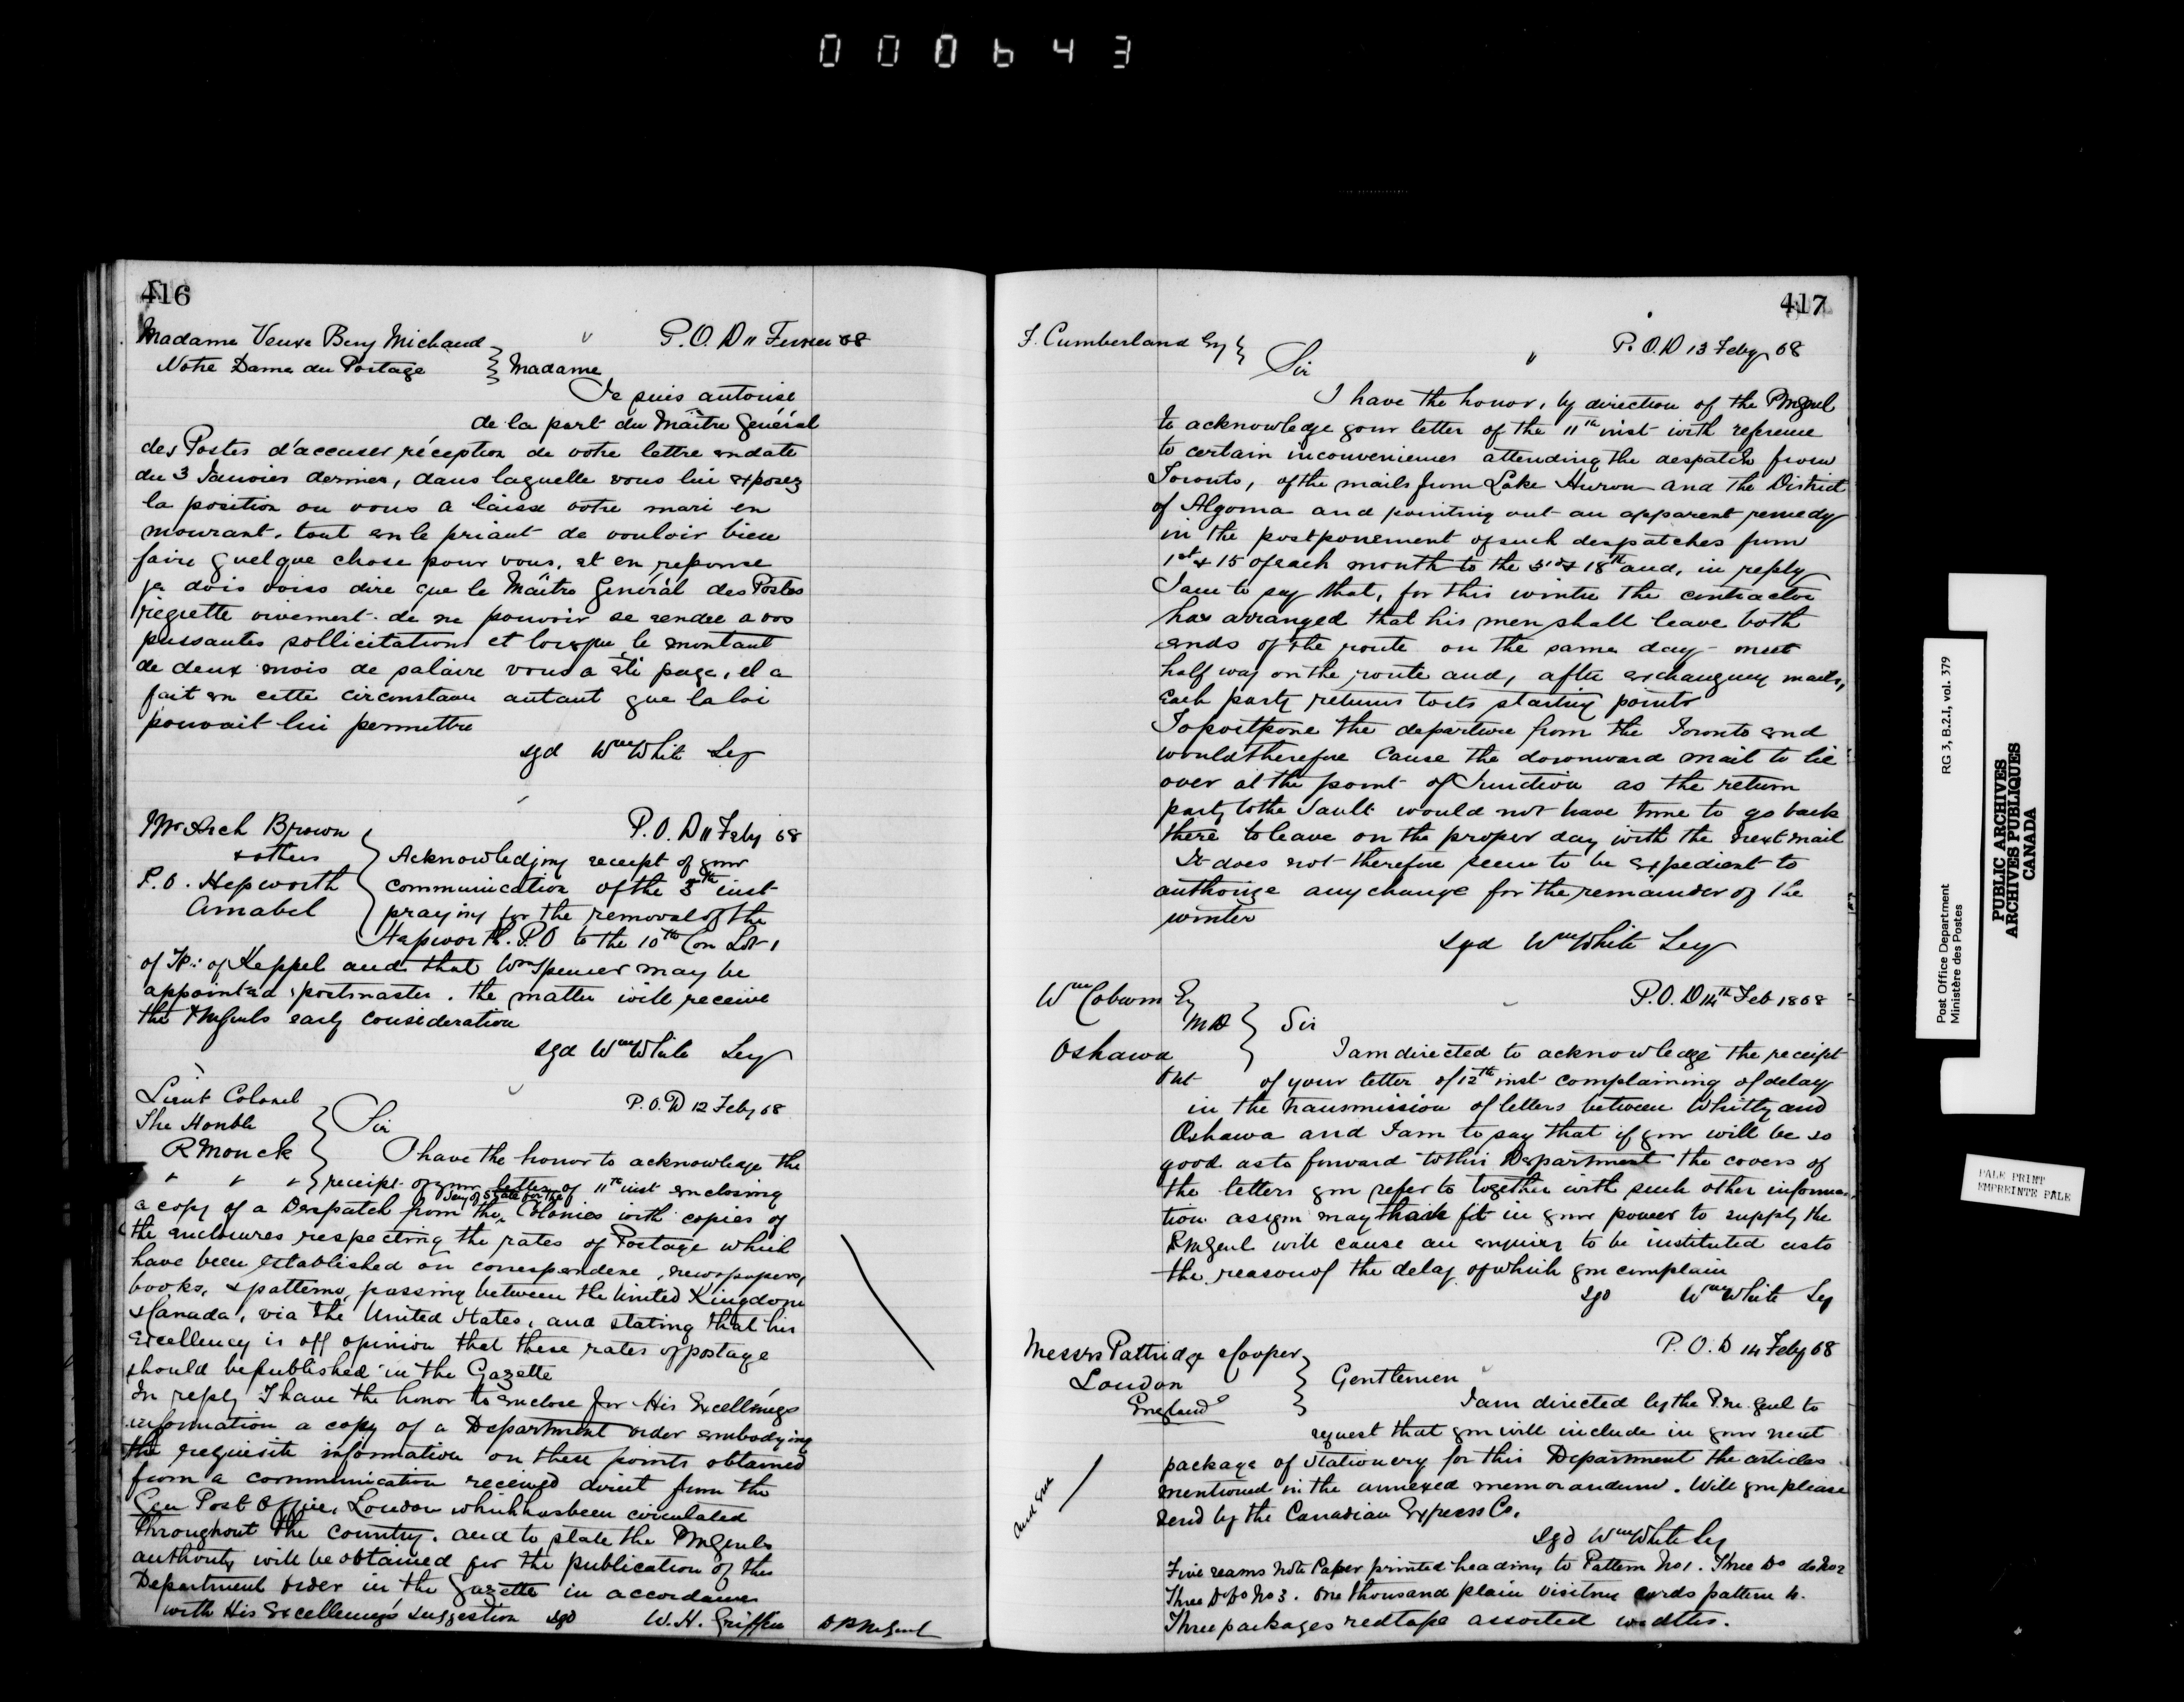 000643
416
Madame Veuve Benj Michaud
Notre Dame du Portage
P.O.D 11 Fevrier 68
Madame
Je suis autorisé
de la part du Maître Général
des Postes d'accuser réception de votre lettre en date
du 3 Janvier dernier, dans laquelle vous lui exposez
la position ou vous a laissé votre mari en
mourant, tout en le priant de vouloir bien
faire quelque chose pour vous, et en reponse
je dois vous dire que le Maître Général des Postes
regrette vivement de ne pouvoir se rendre a vos
pressantes sollicitations et lorsque le montant
de deux mois de salaire vous a été payé, il a
fait en cette circonstance autant que la loi
pouvait lui permettre
sgd Wm White Secy
Mr Arch Brown
& others
P.O. Hepworth
Amabel
P.O.D 11 Feby 68
Acknowledging receipt of your
communication of the 5th inst
praying for the removal of the
Hepworth P.O to the 10th Con Lot 1
of Tp: of Keppel and that Wm Spencer may be
appointed postmaster. the matter will receive
the PMGenls early consideration
sgd Wm White Secy
Lieut Colonel
The Honble
R Monck
" " "
P.O.D 12 Feby 68
Sir
I have the honor to acknowledge the
receipt of your letter of 11th inst enclosing
a copy of a Despatch from the Secy of State for the Colonies with copies of
the enclosures respecting the rates of Postage which
have been established on correspondence, newspapers,
books, & patterns, passing between the United Kingdom
& Canada, via the United States, and stating that his
Excellency is off opinion that these rates of postage
should be published in the Gazette
In reply I have the honor to enclose for His Excellency's
information a copy of a Department order embodying
the requisite information on these points obtained
from a communication received direct from the
Gen Post Office, London which has been circulated
throughout the country. and to state the PMGenls
authority will be obtained for the publication of this
Department order in the Gazette in accordance
with His Excellency's suggestion sgd W. H. Griffin D P M Genl
417
F. Cumberland Esq
P.O.D 13 Feby 68
Sir
I have the honor, by direction of the PMGenl
to acknowledge your letter of the 11th inst with reference
to certain inconveniences attending the despatch from
Toronto, of the mails from Lake Huron and the District
of Algoma and pointing out an apparent remedy
in the postponement of such despatches from
1st & 15 of each month to the 3rd & 18th and, in reply
I am to say that, for this winter the contractor
has arranged that his men shall leave both
ends of the route on the same day - meet
half way on the route and, after exchanging mails,
each party returns to its starting points
To postpone the departure from the Toronto end
would therefore cause the downward mail to lie
over at the point of Junction as the return
party to the Sault would not have time to go back
there to leave on the proper day with the next mail
It does not therefore seem to be expedient to
authorize any change for the remainder of the
winter
sgd Wm White Secy
Wm Coburn Esq
MD
Oshawa
Ont
P.O.D 14th Feb 1868
Sir
I am directed to acknowledge the receipt
of your letter of 12th inst complaining of delay
in the transmission of letters between Whitby and
Oshawa and I am to say that if you will be so
good as to forward to this Department the covers of
the letters you refer to together with such other informa-
tion as you may have it in your power to supply the
PMGenl will cause an enquiry to be instituted as to
the reason of the delay of which you complain
sgd Wm White Secy
Messrs Pattridge & Cooper
London
England
P.O.D 14 Feby 68
Gentlemen
I am directed by the P.M. Genl to
request that you will include in your next
package of Stationery for this Department the articles
mentioned in the annexed memorandum. Will you please
send by the Canadian Express Co.
sgd Wm White Secy
Five reams Note Paper printed heading to Pattern No 1. Three Do do No 2
Three Do Do No 3. One thousand plain visiting cards pattern 4.
Three packages red tape assorted widths.
Post Office Department RG 3, B.2.I, vol. 379
Ministère des Postes
PUBLIC ARCHIVES
ARCHIVES PUBLIQUES
CANADA
PALE PRINT
EMPREINTE PALE